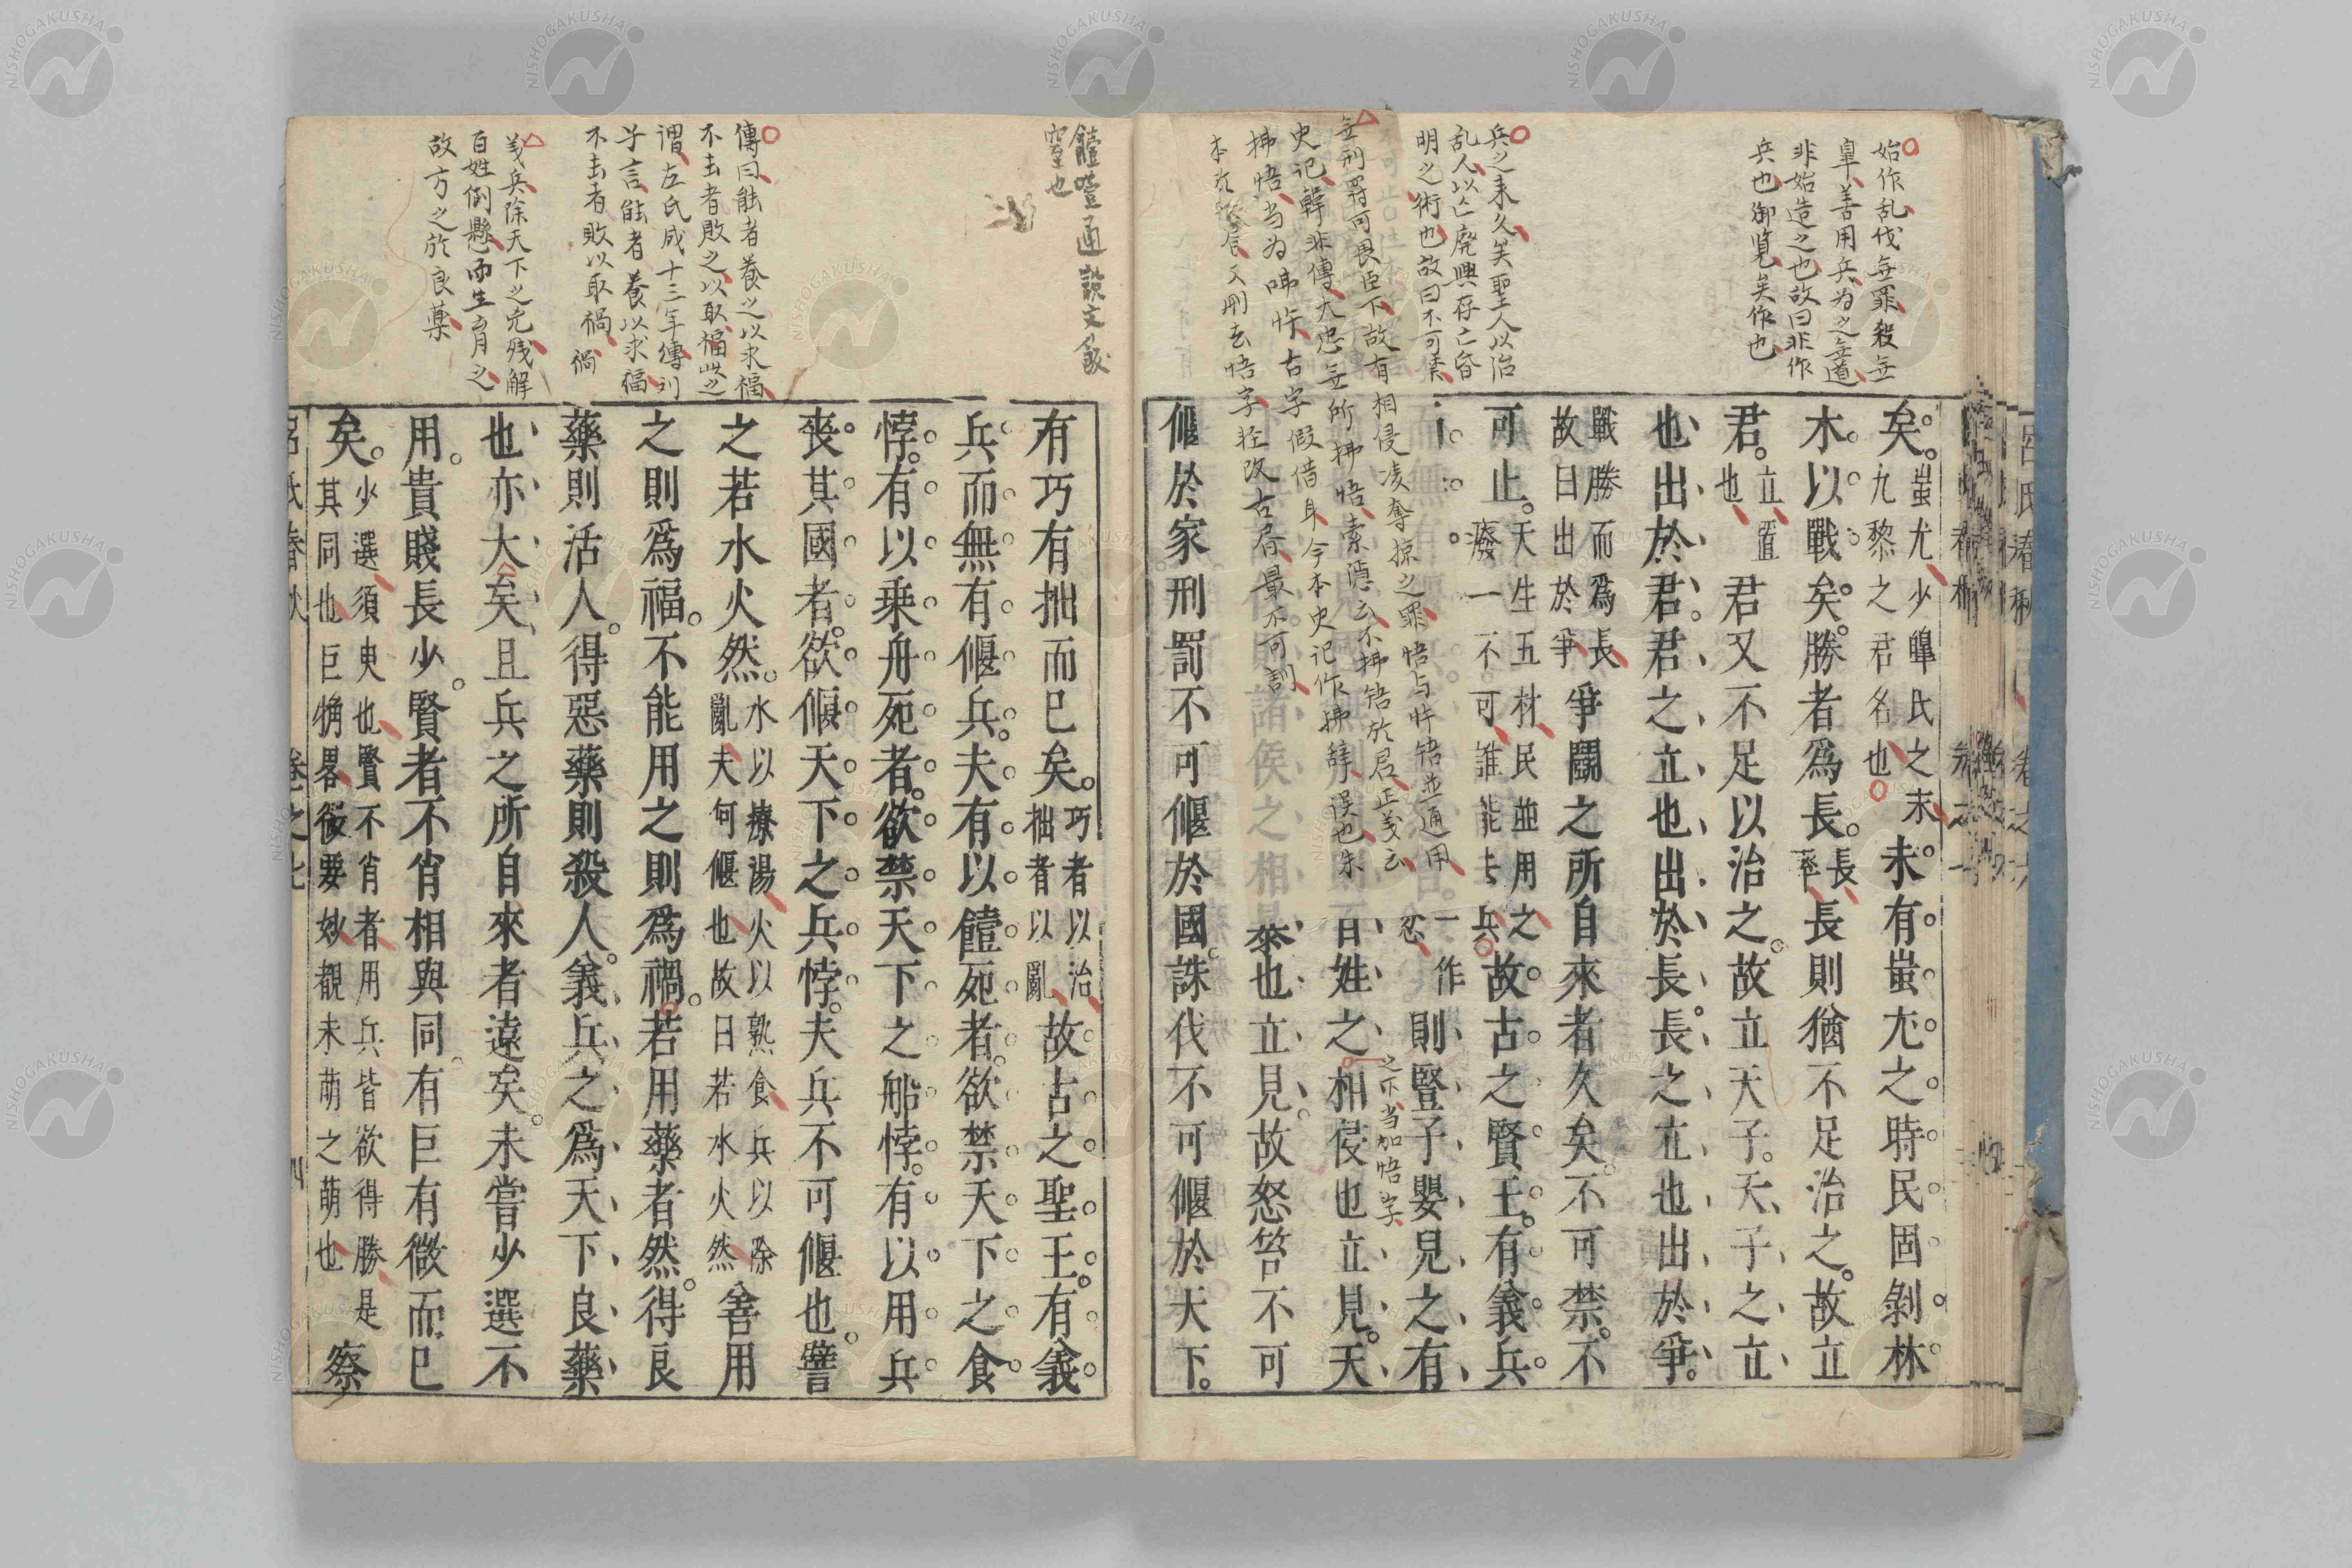 始作乱伐無罪殺無
辜善用兵為之無道
非始造之也故曰非作
兵也御覧矣作也
兵之来久矣聖人以治
乱人以亡廃興存亡昏
明之術也故曰不可禁
無刑罸可畏臣下故有相侵凌奪掠之罪悟与忤啎並通用
史记韓非傳大忠無所拂悟索隠云不拂啎於君正義云
拂悟当为咈忤古字假借耳今本史记作拂辞誤也朱
本 又刪去悟字軽改古書最不可訓
矣。蚩尤少皥氏之末
九黎之君名也未有蚩尤之時民固剝林
木以戰矣。勝者爲長。長率長則猶不足治之。故立
君。立置也君又不足以治之。故立天子。天子之立
也出於君。君之立也出於長。長之立也出於爭。
戰勝而爲長
故曰出於爭爭鬭之所自來者久矣。不可禁。不
可止。天生五材民並用之
廢一不可誰能去兵故古之賢王有義兵
一作忿則豎子嬰兒之有
百姓之相侵也立見。天
之下当加悟字
也立見。故怒笞不可
偃於家刑罰不可偃於國。誅伐不可偃於天下。
饐噎通說文飯
窒也
傳曰能者養之以求福
不去者敗之以取禍此之
謂左氏成十三年傳刘
子言能者養以求福
不去者敗以取禍 禍
義兵除天下之凶残解
百姓倒懸而生育之
故方之於良薬
有巧有拙而已矣。巧者以治
拙者以亂故古之聖王有義
兵而無有偃兵。夫有以饐死者欲禁天下之食
悖。有以乗舟死者。欲禁天下之船悖。有以用兵
喪其國者。欲偃天下之兵悖。夫兵不可偃也。譬
之若水火然。水以療湯火以熟食兵以除
亂夫何偃也故曰若水火然善用
之則爲福。不能用之則爲禍。若用藥者然。得良
藥則活人。得惡藥則殺人。義兵之爲天下良藥
也亦大矣。且兵之所自來者遠矣。未嘗少選不
用。貴賤長少。賢者不肖相與同。有巨有微而已
矣。少選須臾也賢不肖者用兵皆欲得勝是
其同也巨觕畧微要妙覩未萌之萌也察
呂氏春秋 卷之七 四